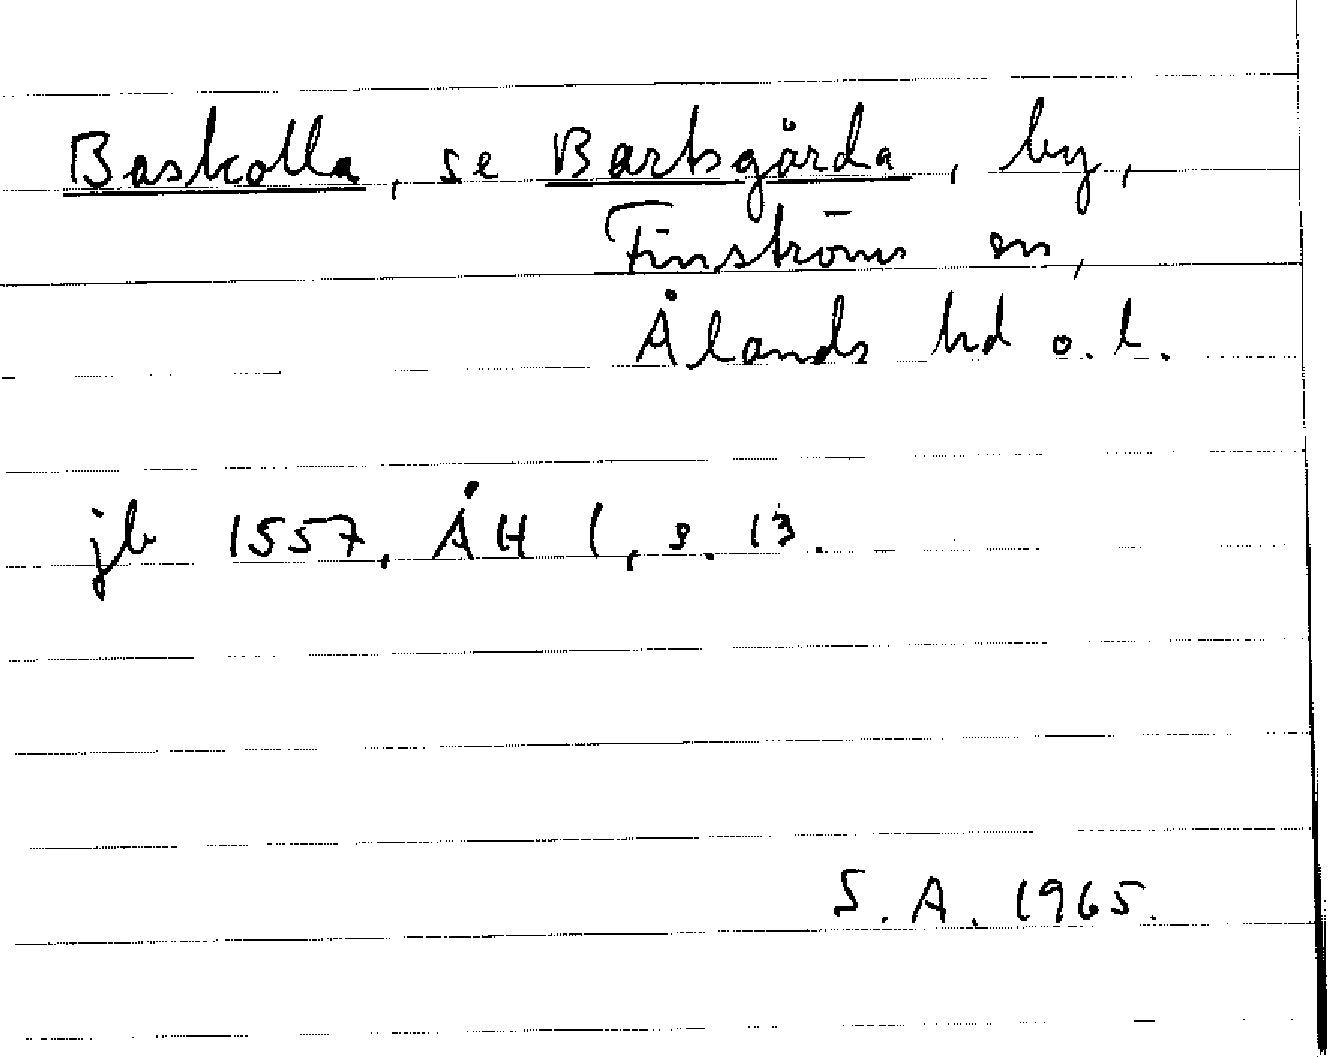 Baskolla, se Bartsgårda, by,
Finströms sn,
Ålands hd o. l.
jb 1557, ÅH 1, s. 13.
S. A. 1965.